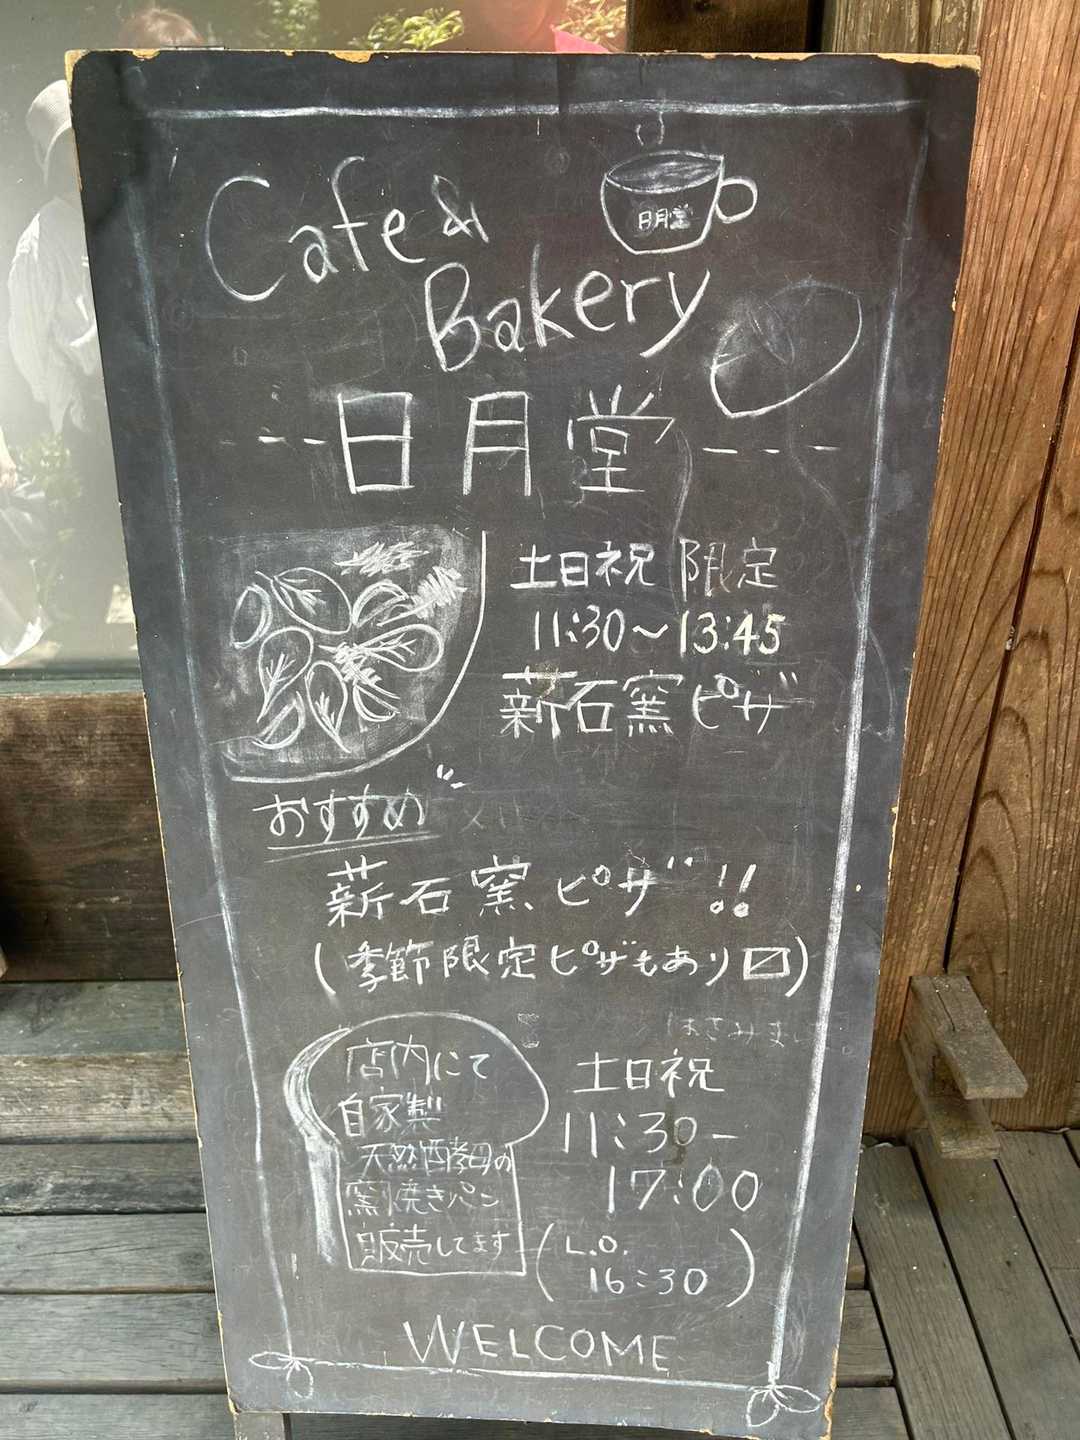 Cafe &
Bakery
日月堂
日月堂
土日祝 限定
11:30～13:45
薪石窯ピザ
おすすめ
薪石窯ピザ!!
(季節限定ピザもあり〼)
店内にて
自家製
天然酵母の
窯焼きパン
販売してます
土日祝
11:30-
17:00
(L.O.
16:30)
WELCOME